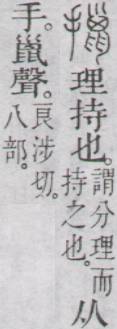 擸理持也。謂分理而持之也。从
手。巤聲。良涉切。八部。